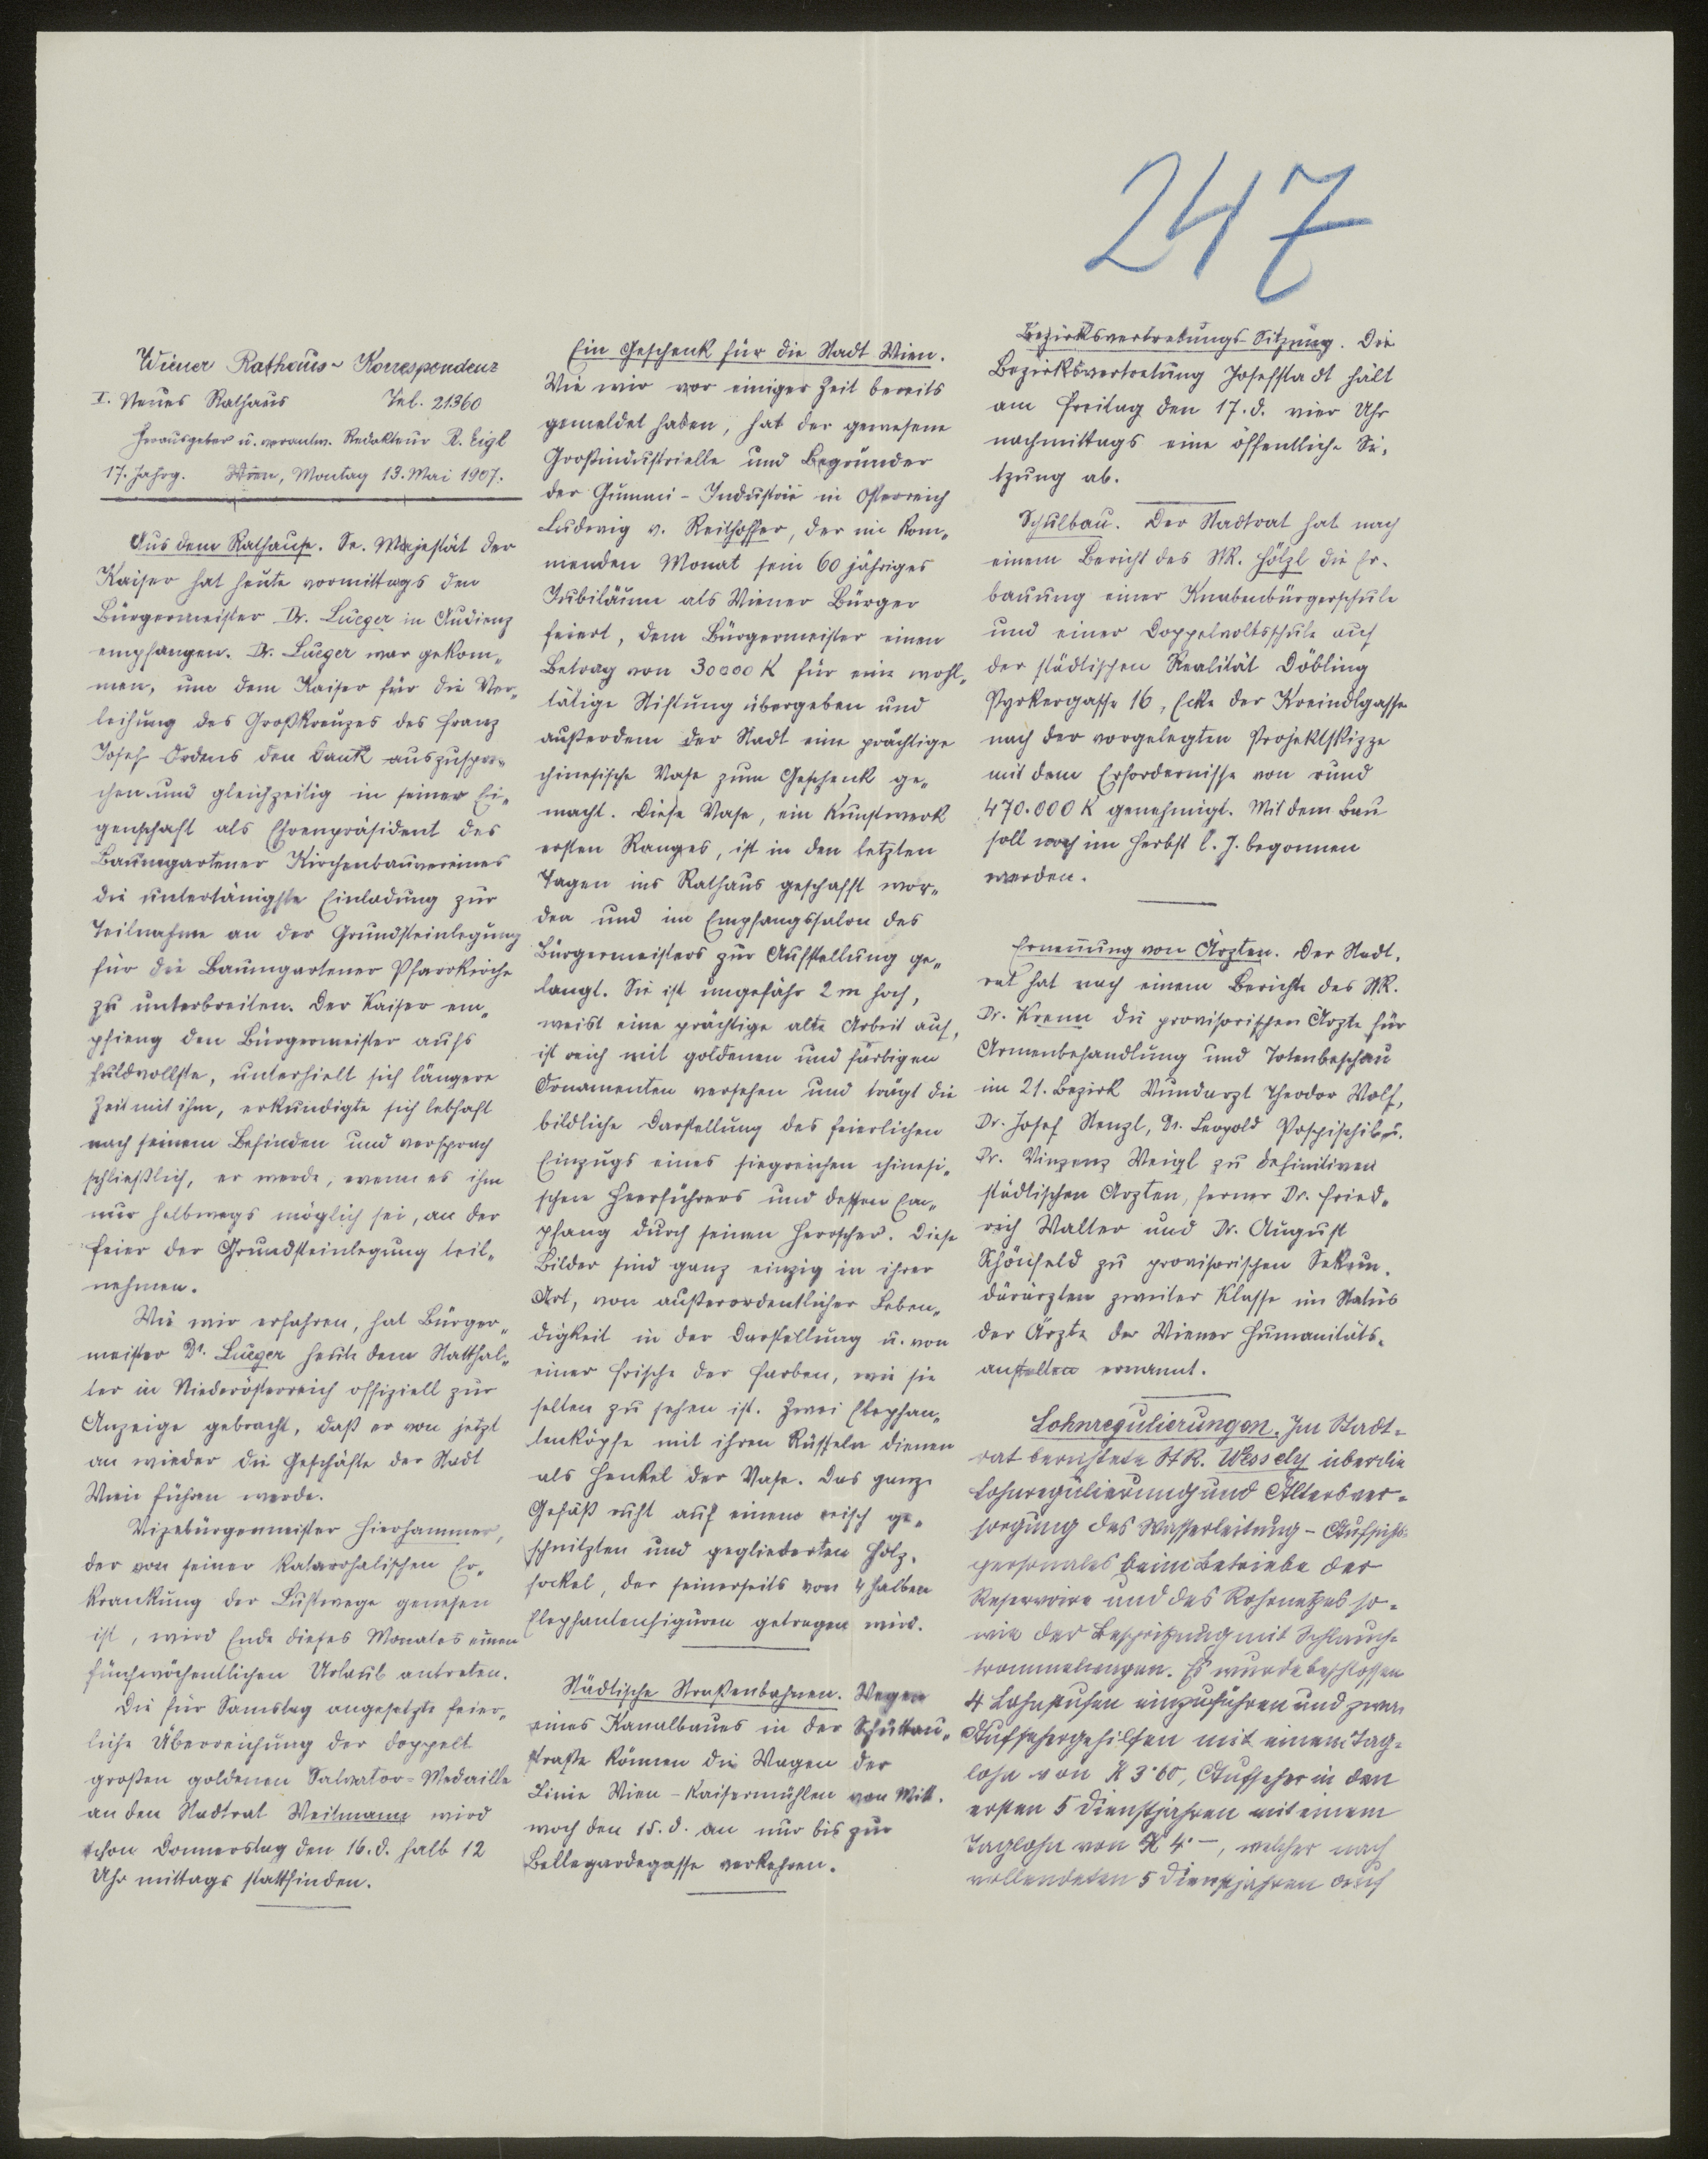 247
Wiener Rathaus-Korrespondenz
I. Neues Rathaus Tel. 21360
Herausgeber u. verantw. Redakteur R. Eigl
17. Jahrg. Wien, Montag 13. Mai 1907.
Aus dem Rathause. Se. Majestät der
Kaiser hat heute vormittags den
Bürgermeister Dr. Lueger in Audienz
empfangen. Dr. Lueger war gekom„
men, um dem Kaiser für die Ver„
leihung des Großkreuzes des Franz
Josef-Ordens den Dank auszuspre„
chen und gleichzeitig in seiner Ei„
genschaft als Ehrenpräsident des
Baumgartener Kirchenbauvereines
die untertänigste Einladung zur
Teilnahme an der Grundsteinlegung
für die Baumgartener Pfarrkirche
zu unterbreiten. Der Kaiser em„
pfieng den Bürgermeister aufs
huldvollste, unterhielt sich längere
Zeit mit ihm, erkundigte sich lebhaft
nach seinem Befinden und versprach
schließlich, er werde, wenn es ihm
nur halbwegs möglich sei, an der
Feier der Grundsteinlegung teil„
nehmen.
Wie wir erfahren, hat Bürger„
meister Dr. Lueger heute dem Statthal„
ter in Niederösterreich offiziell zur
Anzeige gebracht, daß er von jetzt
an wieder die Geschäfte der Stadt
Wien führen werde.
Vizebürgermeister Hierhammer,
der von seiner katarrhalischen Er„
krankung der Luftwege genesen
ist, wird Ende dieses Monates einen
fünfwöchentlichen Urlaub antreten.
Die für Samstag angesetzte feier„
liche Überreichung der doppelt
großen goldenen Salvator-Medaille
an den Stadtrat Weitmann wird
schon Donnerstag den 16. d. halb 12
Uhr mittags stattfinden.
Ein Geschenk für die Stadt Wien.
Wie wir vor einiger Zeit bereits
gemeldet haben, hat der gewesene
Großindustrielle und Begründer
der Gummi-Industrie in Österreich
Ludwig v. Reithoffer, der im kom„
menden Monat sein 60 jähriges
Jubiläum als Wiener Bürger
feiert, dem Bürgermeister einen
Betrag von 30000 K für eine wohl„
tätige Stiftung übergeben und
außerdem der Stadt eine prächtige
chinesische Vase zum Geschenk ge„
macht. Diese Vase, ein Kunstwerk
ersten Ranges, ist in den letzten
Tagen ins Rathaus geschafft wor„
den und im Empfangssalon des
Bürgermeisters zur Aufstellung ge„
langt. Sie ist ungefähr 2 m hoch,
weist eine prächtige alte Arbeit auf,
ist reich mit goldenen und färbigen
Ornamenten versehen und trägt die
bildliche Darstellung des feierlichen
Einzugs eines siegreichen chinesi„
schen Heerführers und dessen Em„
pfang durch seinen Herrscher. Diese
Bilder sind ganz einzig in ihrer
Art, von außerordentlicher Leben„
digkeit in der Darstellung u. von
einer Frische der Farben, wie sie
selten zu sehen ist. Zwei Elephan„
tenköpfe mit ihren Rüsseln dienen
als Henkel der Vase. Das ganze
Gefäß ruht auf einem reich ge„
schnitzten und gegliederten Holz„
sockel, der seinerseits von 4 halben
Elephantenfiguren getragen wird.
Städtische Straßenbahnen. Wegen
eines Kanalbaues in der Schüttau„
straße können die Wagen der
Linie Wien-Kaisermühlen von Mitt„
woch den 15. d. an nur bis zur
Bellegardegasse verkehren.
Bezirksvertretungs-Sitzung. Die
Bezirksvertretung Josefstadt hält
am Freitag den 17. d. vier Uhr
nachmittags eine öffentliche Si„
tzung ab.
Schulbau. Der Stadtrat hat nach
einem Bericht des StR. Hölzl die Er„
bauung einer Knabenbürgerschule
und einer Doppelvolksschule auf
der städtischen Realität Döbling
Pyrkergasse 16, Ecke der Kreindlgasse
nach der vorgelegten Projektskizze
mit dem Erfordernisse von rund
470.000 K genehmigt. Mit dem Bau
soll noch im Herbst l. J. begonnen
werden.
Ernennung von Ärzten. Der Stadt„
rat hat nach einem Berichte des StR.
Dr. Krenn die provisorischen Ärzte für
Armenbehandlung und Totenbeschau
im 21. Bezirk Wundarzt Theodor Wolf,
Dr. Josef Stenzl, Dr. Leopold Pospischil u.
Dr. Vinzenz Weigl zu definitiven
städtischen Ärzten, ferner Dr. Fried„
rich Walter und Dr. August
Schönfeld zu provisorischen Sekun„
därärzten zweiter Klasse im Status
der Ärzte der Wiener Humanitäts„
anstalten ernannt.
Lohnregulierungen. Im Stadt=
rat berichtete StR. Wessely über die
Lohnregulierung und Altersver=
sorgung des Wasserleitung-Aufsichts=
personales beim Betriebe der
Reservoire und des Rohrnetzes so=
wie der Bespritzung mit Schlauch=
trommelwagen. Es wurde beschlossen
4 Lohnstufen einzuführen und zwar
Aufsehergehilfen mit einem Tag=
lohn von K 3˙60, Aufseher in den
ersten 5 Dienstjahren mit einem
Taglohn von K 4˙—, welcher nach
vollendeten 5 Dienstjahren auf